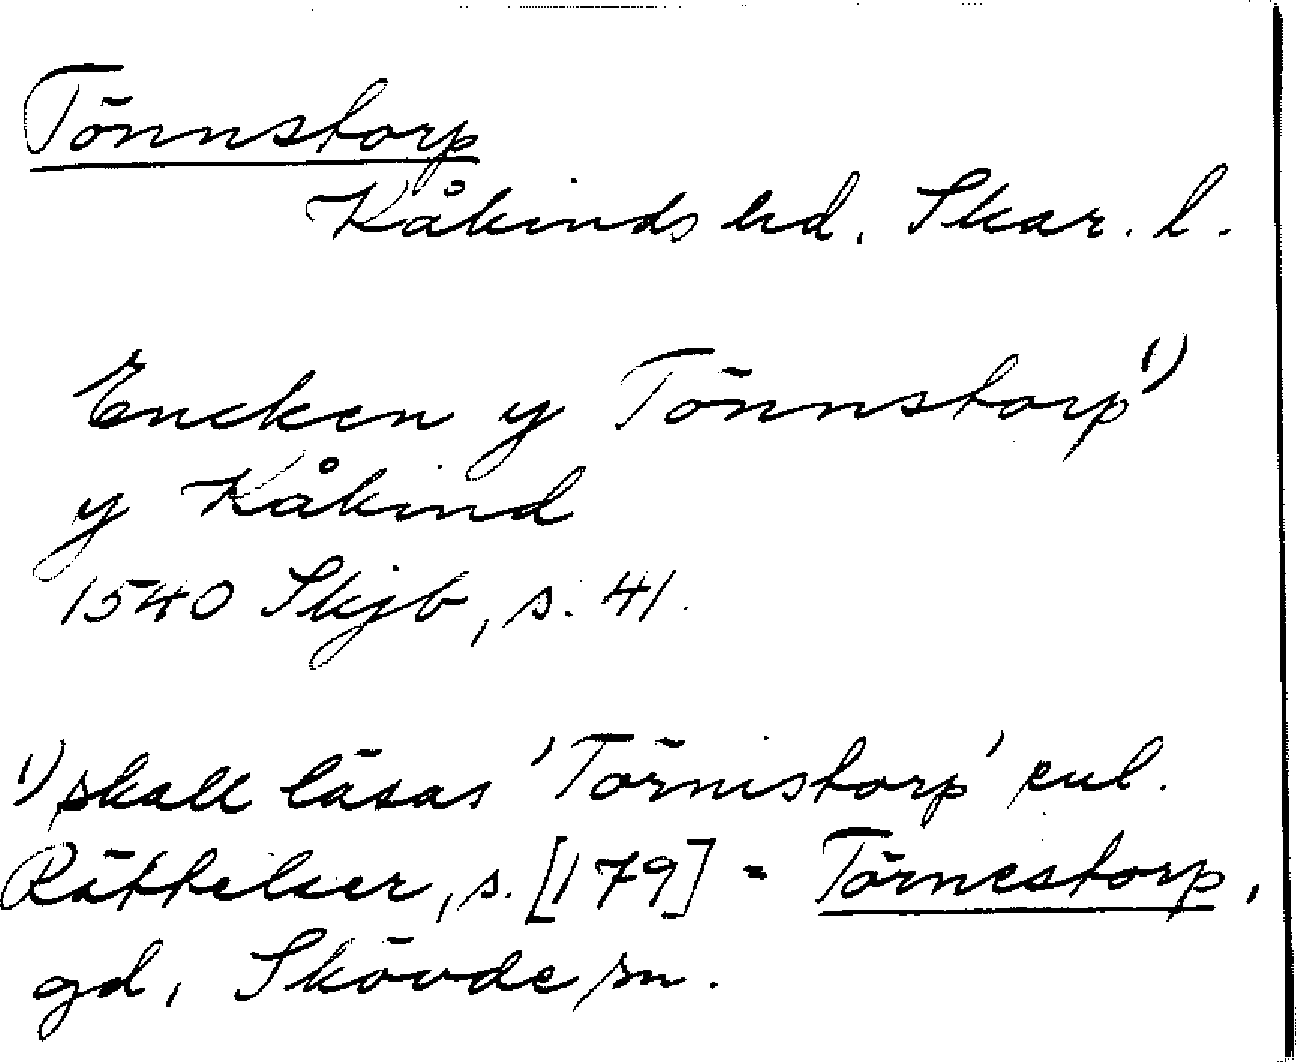 Tönnstorp
Kåkinds hd. Skar. l.
Encken y Tönnstorp¹⁾
y Kåkind
1540 Skjb, s. 41.
¹⁾ skall läsas 'Törnistorp' enl.
Rättelser, s. [179] = Törnestorp,
gd, Skövde sn.